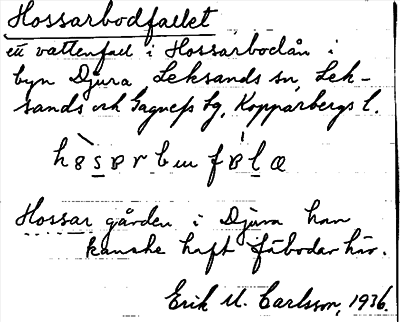 Hossarbodfallet
ett vattenfall i Hossarbodån i
byn Djura Leksands sn, Lek-
sands och Gagnefs tg, Kopparbergs l.
Hossar gården i Djura han
kanske haft fäbodar här.
Erik M. Carlsson, 1936.